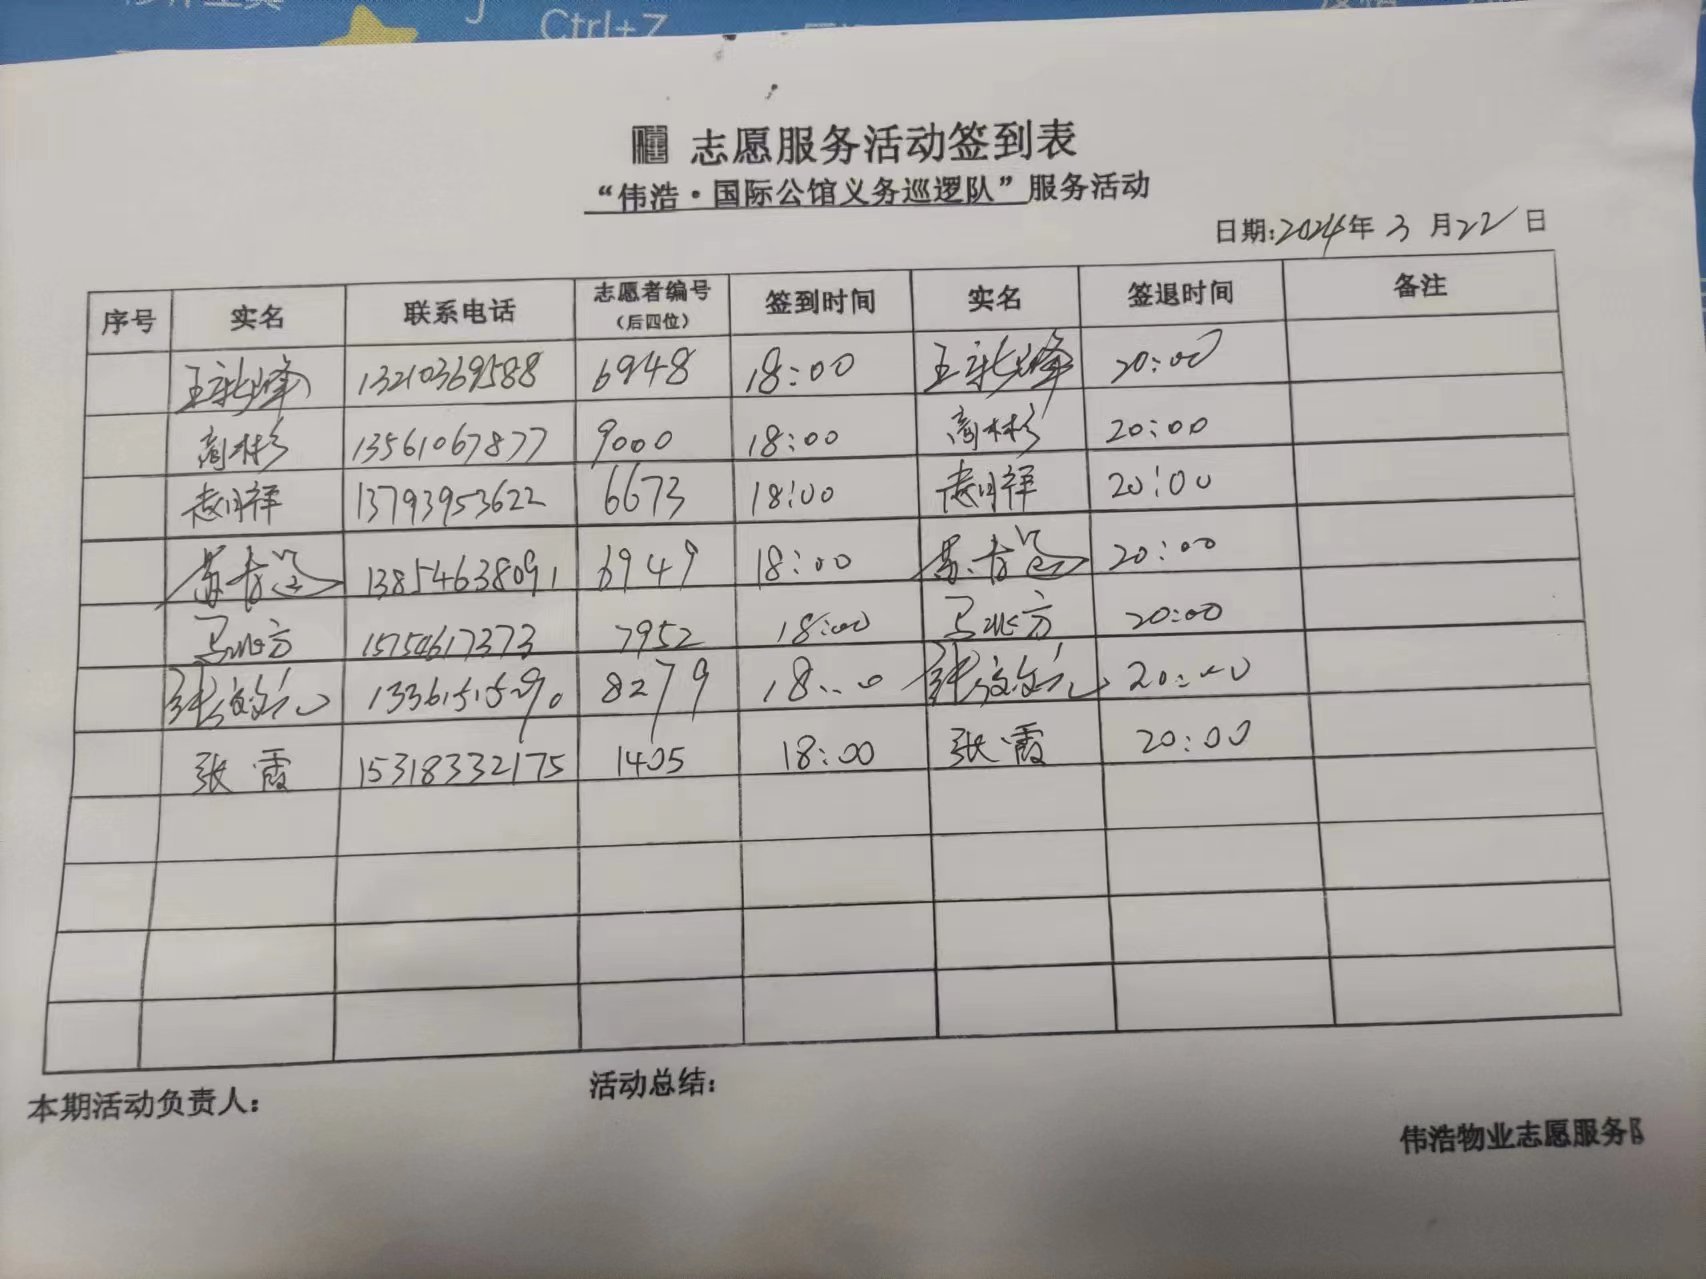 Ctrl+Z
志愿服务活动签到表
“伟浩·国际公馆义务巡逻队”服务活动
日期:2024年 3 月 22 日
序号 实名 联系电话 志愿者编号(后四位) 签到时间 实名 签退时间 备注
13210369588 6948 18:00 20:00
商彬 13561067877 9000 18:00 商彬 20:00
13793953622 6673 18:00 20:00
13854638091 6949 18:00 20:00
马北方 15754617373 7952 18:00 马北方 20:00
8279 18:00 20:00
张霞 15318332175 1405 18:00 张霞 20:00
本期活动负责人： 活动总结：
伟浩物业志愿服务